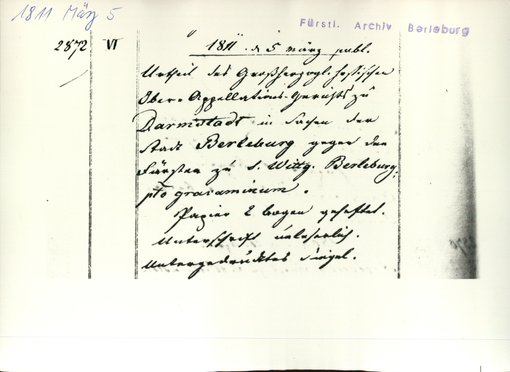 1811 März 5
Fürstl. Archiv Berleburg
2872 VI
1811. d 5 märz publ.
Urtheil des Großherzogl. hessischen
Ober-Appellations-Gerichts zu
Darmstadt in Sachen der
Stadt Berleburg gegen den
Fürsten zu S. Wittg. Berleburg,
pto gravaminum.
Papier 2 bogen geheftet.
Unterschrift unleserlich.
Untergedrucktes Siegel.